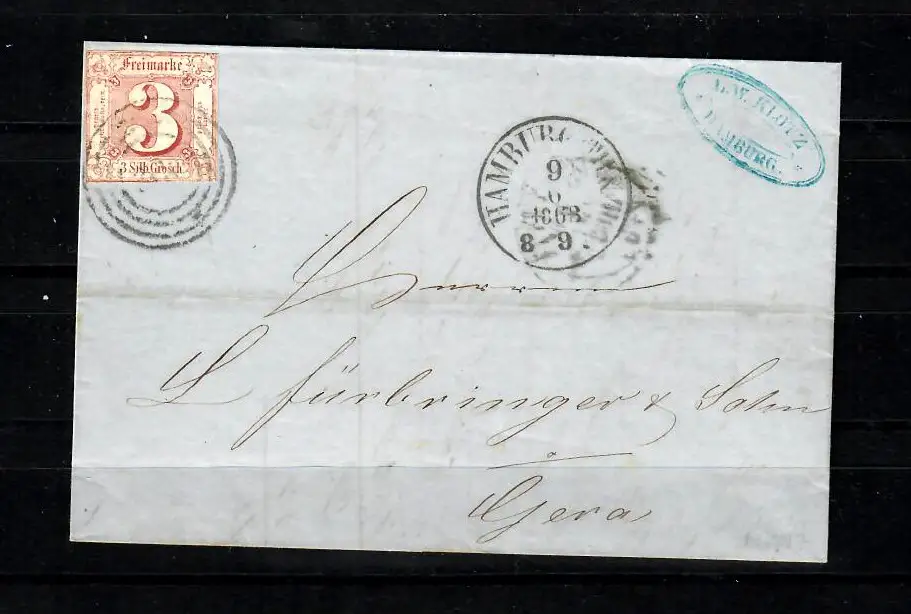 Freimarke
3
3 Silb. Grosch.
HAMBURG TH. & TAX.
9
6
1863
8-9.
HAMBURG.
Herren
L Fürbringer & Sohn
Gera